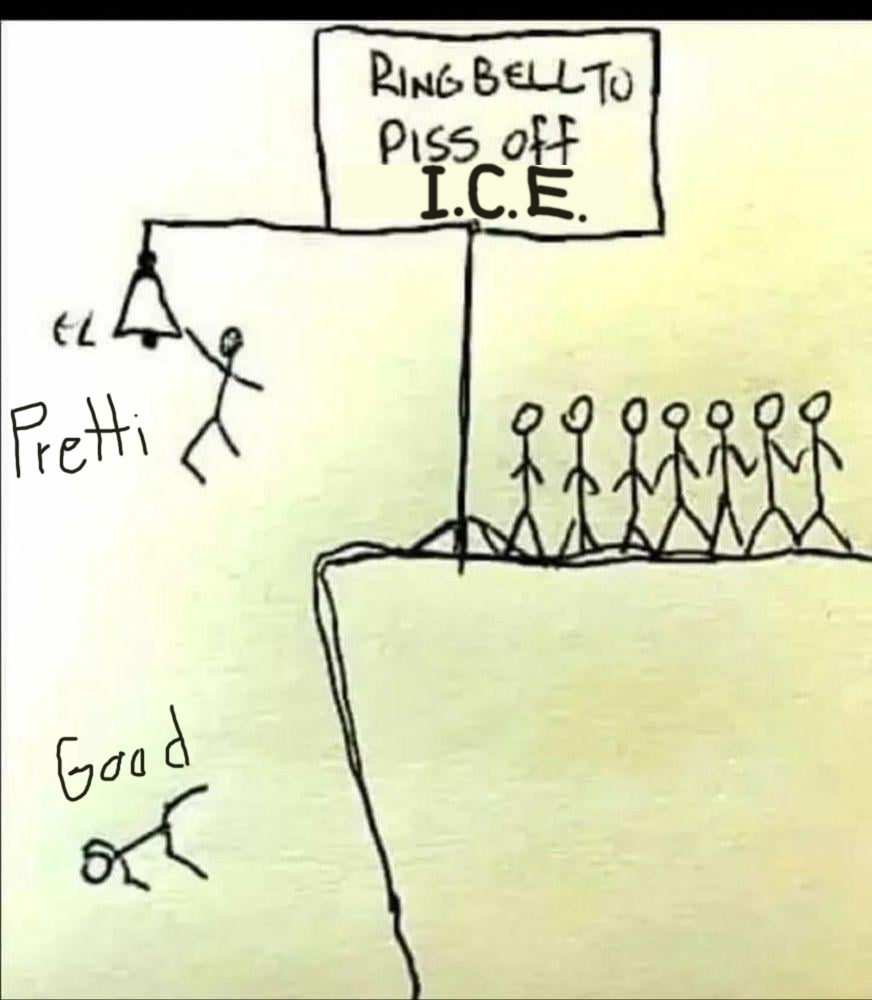 RING BELL TO
PISS Off
I.C.E.
Pretti
Good